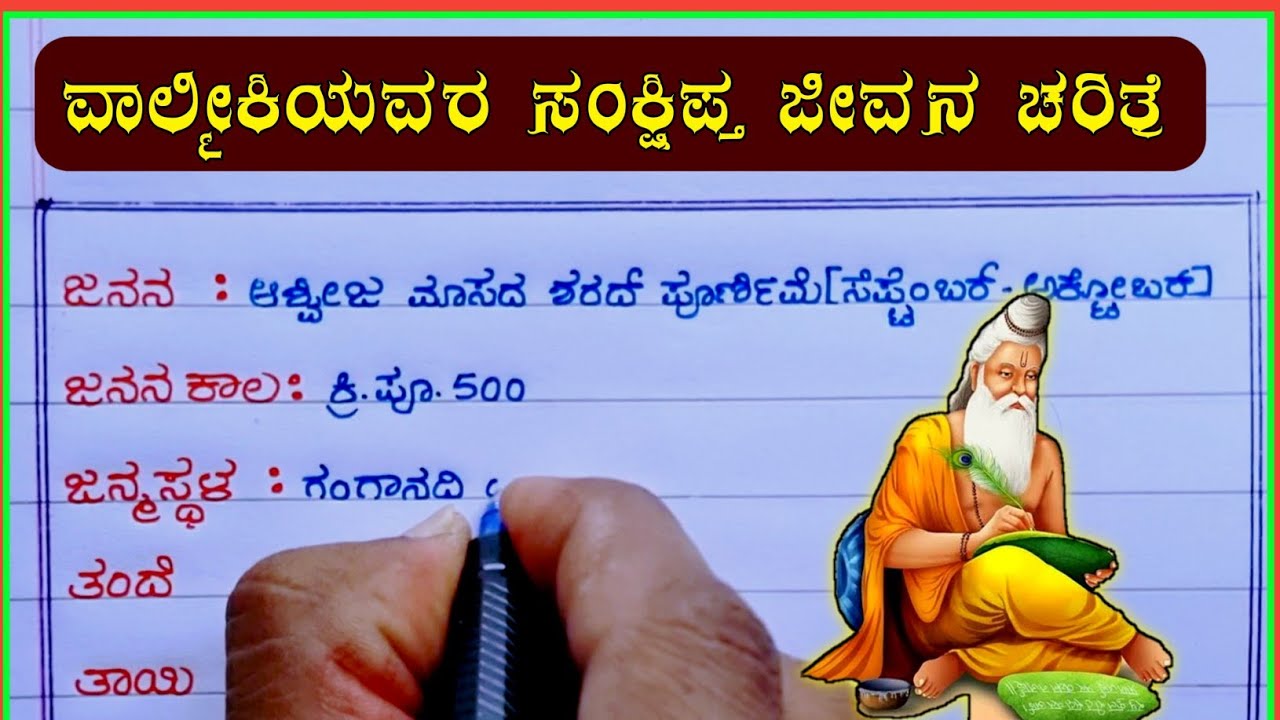 ವಾಲ್ಮೀಕಿಯವರ ಸಂಕ್ಷಿಪ್ತ ಜೀವನ ಚರಿತ್ರೆ
ಜನನ : ಆಶ್ವೀಜ ಮಾಸದ ಶರದ್ ಪೂರ್ಣಿಮೆ [ಸೆಪ್ಟೆಂಬರ್ - ಅಕ್ಟೋಬರ್]
ಜನನ ಕಾಲ : ಕ್ರಿ.ಪೂ. 500
ಜನ್ಮಸ್ಥಳ : ಗಂಗಾನದಿ
ತಂದೆ
ತಾಯಿ